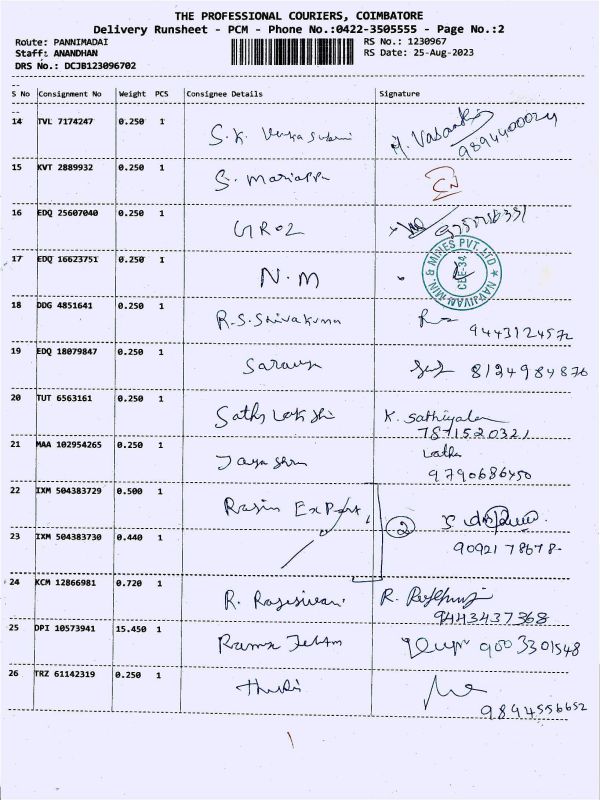 THE PROFESSIONAL COURIERS, COIMBATORE
Delivery Runsheet - PCM - Phone No.:0422-3505555 - Page No.:2
Route: PANNIMADAI RS No.: 1230967
Staff: ANANDHAN RS Date: 25-Aug-2023
DRS No.: DCJB123096702
S No Consignment No Weight PCS Consignee Details Signature
14 TVL 7174247 0.250 1 S.K. M. Vasantha
9894400024
15 KVT 2889932 0.250 1 S. Mariappa CN
16 EDQ 25607040 0.250 1 GROZ
17 EDQ 16623751 0.250 1 N.M
& MINES PVT. LTD
18 DDG 4851641 0.250 1 R.S. Shivakumar
9443124572
19 EDQ 18079847 0.250 1 Saranya 8124984876
20 TUT 6563161 0.250 1 Sathy Lakshi K. Sathiyalan
7871520321
21 MAA 102954265 0.250 1 Jayashri Latha
9790686450
22 IXM 504383729 0.500 1 Rasin Export 2
23 IXM 504383730 0.440 1 9092178678
24 KCM 12866981 0.720 1 R. Rajeswari R.
9443437368
25 DPI 10573941 15.450 1 Rama 9003301548
26 TRZ 61142319 0.250 1
9894556652